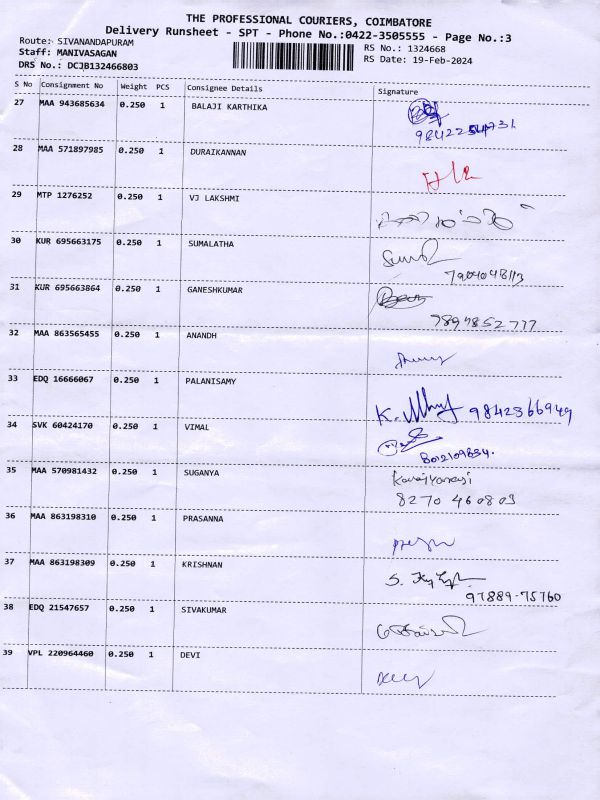 THE PROFESSIONAL COURIERS, COIMBATORE
Delivery Runsheet - SPT - Phone No.:0422-3505555 - Page No.:3
Route: SIVANANDAPURAM
RS No.: 1324668
Staff: MANIVASAGAN
RS Date: 19-Feb-2024
DRS No.: DCJB132466803
S No Consignment No Weight PCS Consignee Details Signature
27 MAA 943685634 0.250 1 BALAJI KARTHIKA
28 MAA 571897985 0.250 1 DURAIKANNAN
29 MTP 1276252 0.250 1 VJ LAKSHMI
30 KUR 695663175 0.250 1 SUMALATHA
7904048113
31 KUR 695663864 0.250 1 GANESHKUMAR
7897852777
32 MAA 863565455 0.250 1 ANANDH
33 EDQ 16666067 0.250 1 PALANISAMY
K. 9842366949
34 SVK 60424170 0.250 1 VIMAL
35 MAA 570981432 0.250 1 SUGANYA
8270 460803
36 MAA 863198310 0.250 1 PRASANNA
37 MAA 863198309 0.250 1 KRISHNAN
S.
97889-75760
38 EDQ 21547657 0.250 1 SIVAKUMAR
39 VPL 220964460 0.250 1 DEVI